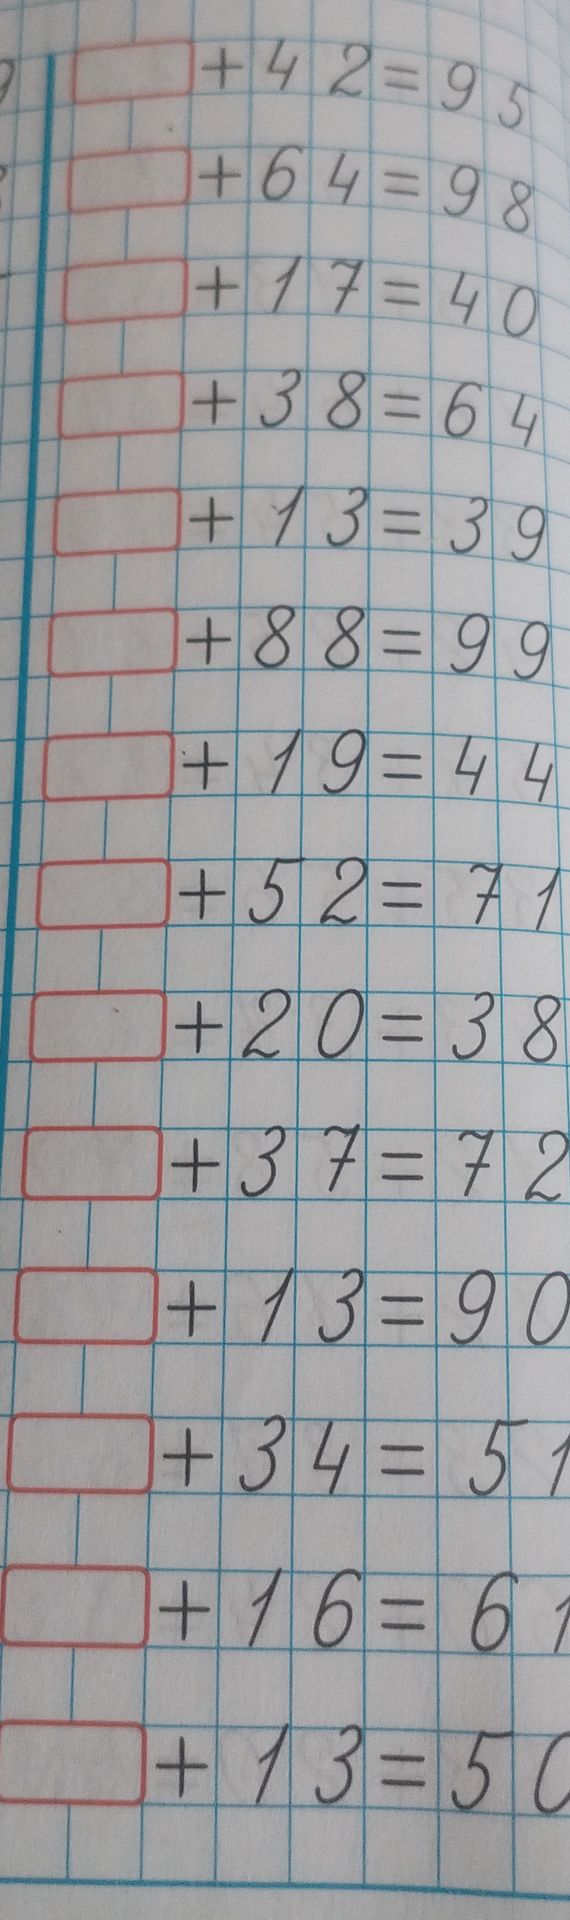 +42=95
+64=98
+17=40
+38=64
+13=39
+88=99
+19=44
+52=71
+20=38
+37=72
+13=90
+34=51
+16=61
+13=50